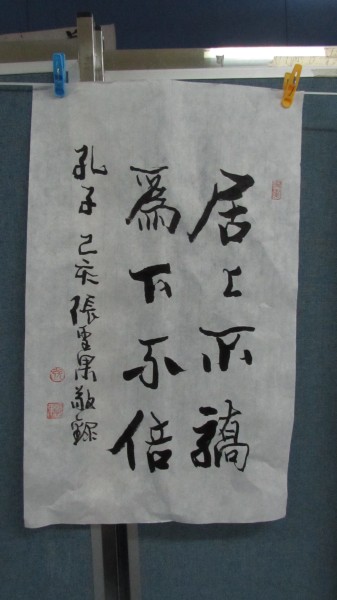 居上不驕
為下不倍
孔子 己亥 張雲果敬錄